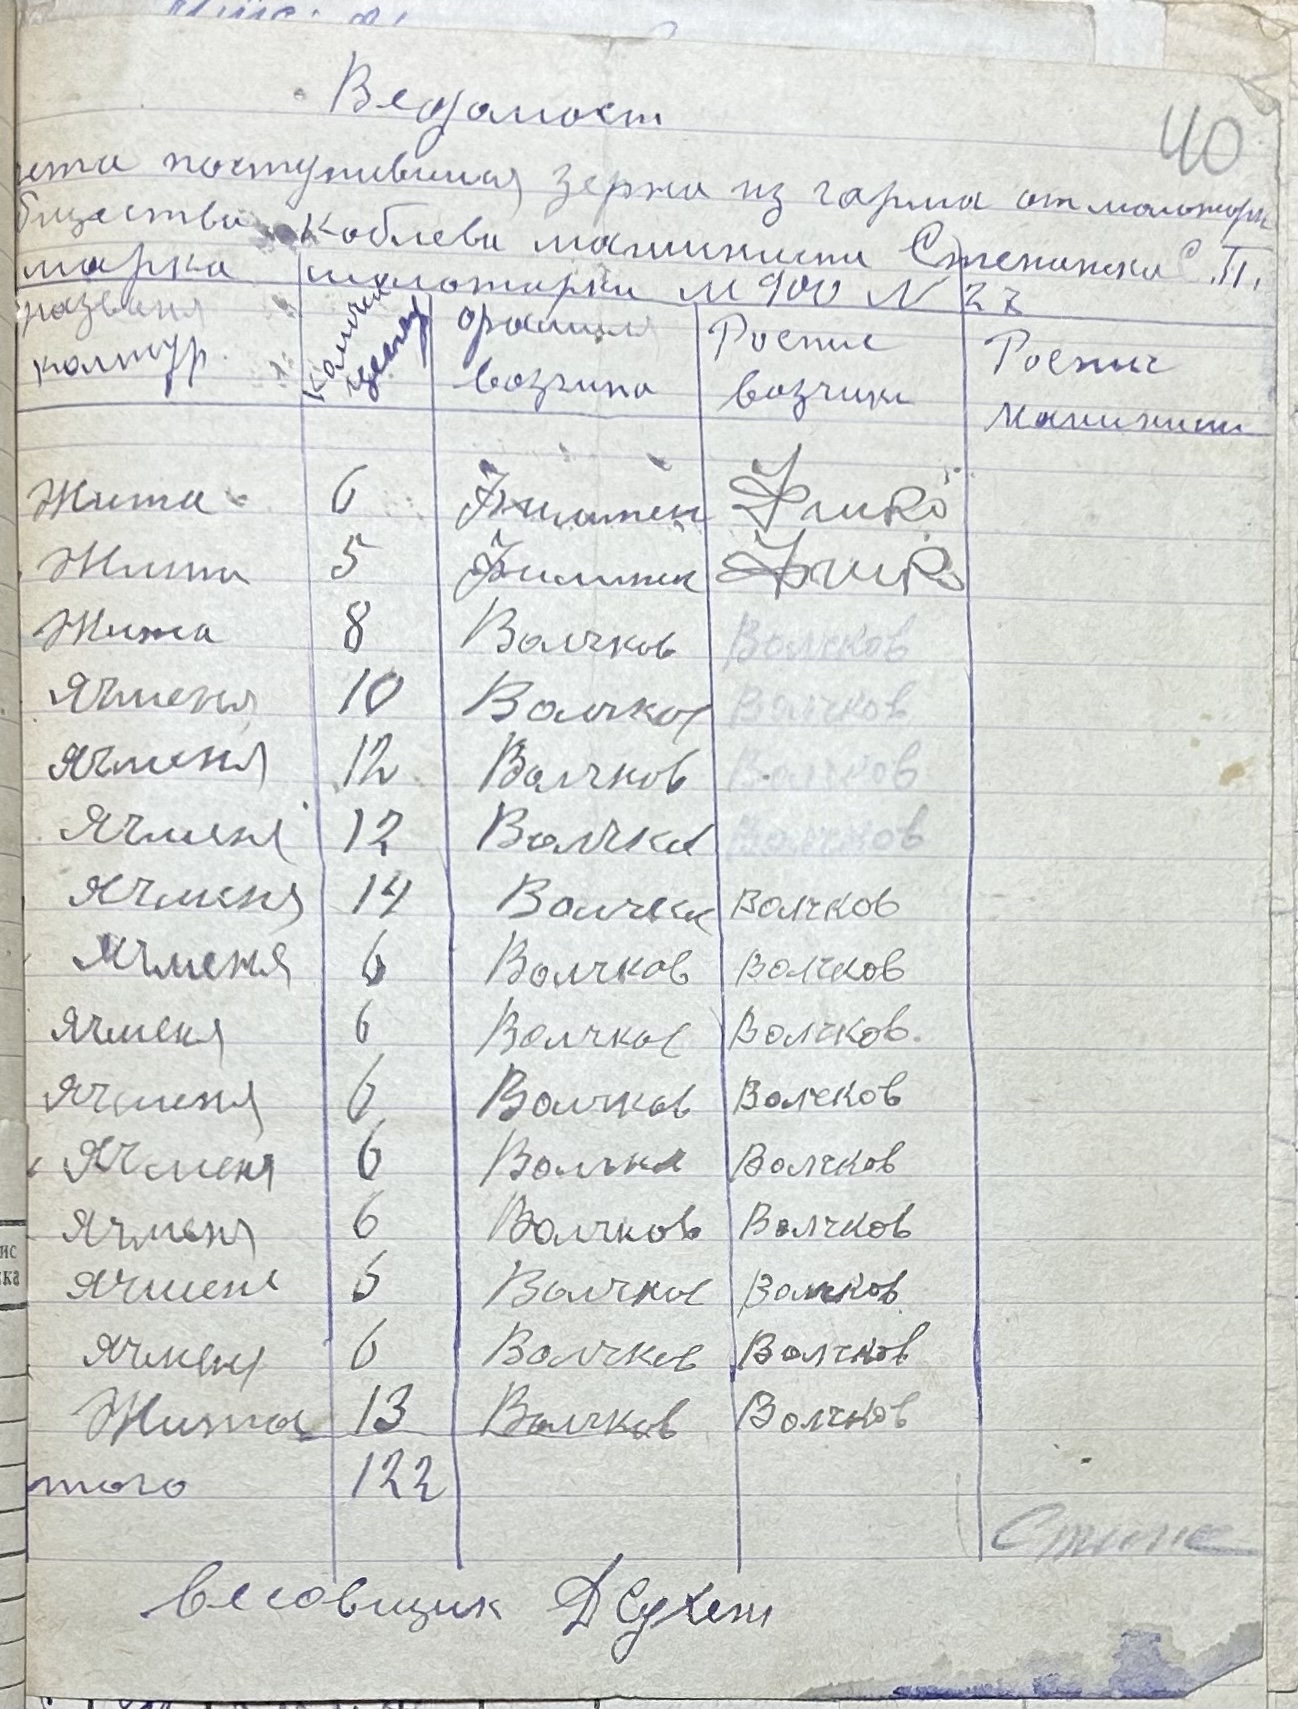 Ведомост
40
поступившия зерна из гарма от молотарк
бщества Коблева машиниста Степанска С. П.
марка молотарки М 900 N 27
названя количе фамиля Роспис Роспис
колтур. центнер возчика возчика машинист
Жита 6
Жита 5
Жита 8 Волчков Волчков
Ячменя 10 Волчков Волчков
Ячменя 12 Волчков Волчков
Ячменя 12 Волчков Волчков
Ячменя 14 Волчков Волчков
Ячменя 6 Волчков Волчков
Ячменя 6 Волчков Волчков.
Ячменя 6 Волчков Волчков
Ячменя 6 Волчков Волчков
Ячменя 6 Волчков Волчков
Ячменя 6 Волчков Волчков
Ячменя 6 Волчков Волчков
Жита 13 Волчков Волчков
того 122
весовщик Д